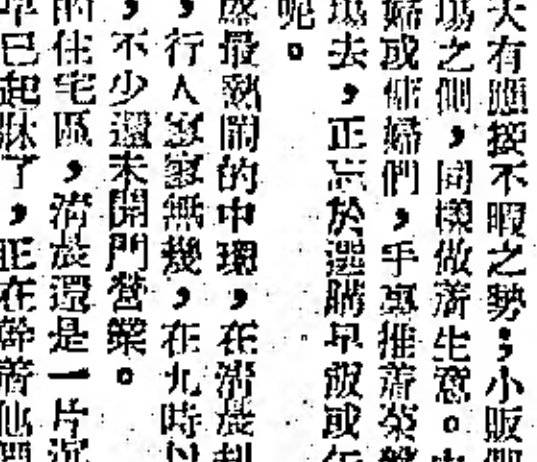 大有應接不暇之勢；小販們
場之側，同樣做着生意。
婦或傭婦們，手裏推着菜籃
場去，正忘於選購早飯或午
呢。
盛最熱鬧的中環，在清晨到
，行人寥寥無幾，在九時以
，不少還未開門營業。
的住宅區，清晨還是一片沉
早已起牀了，正在幹着他們